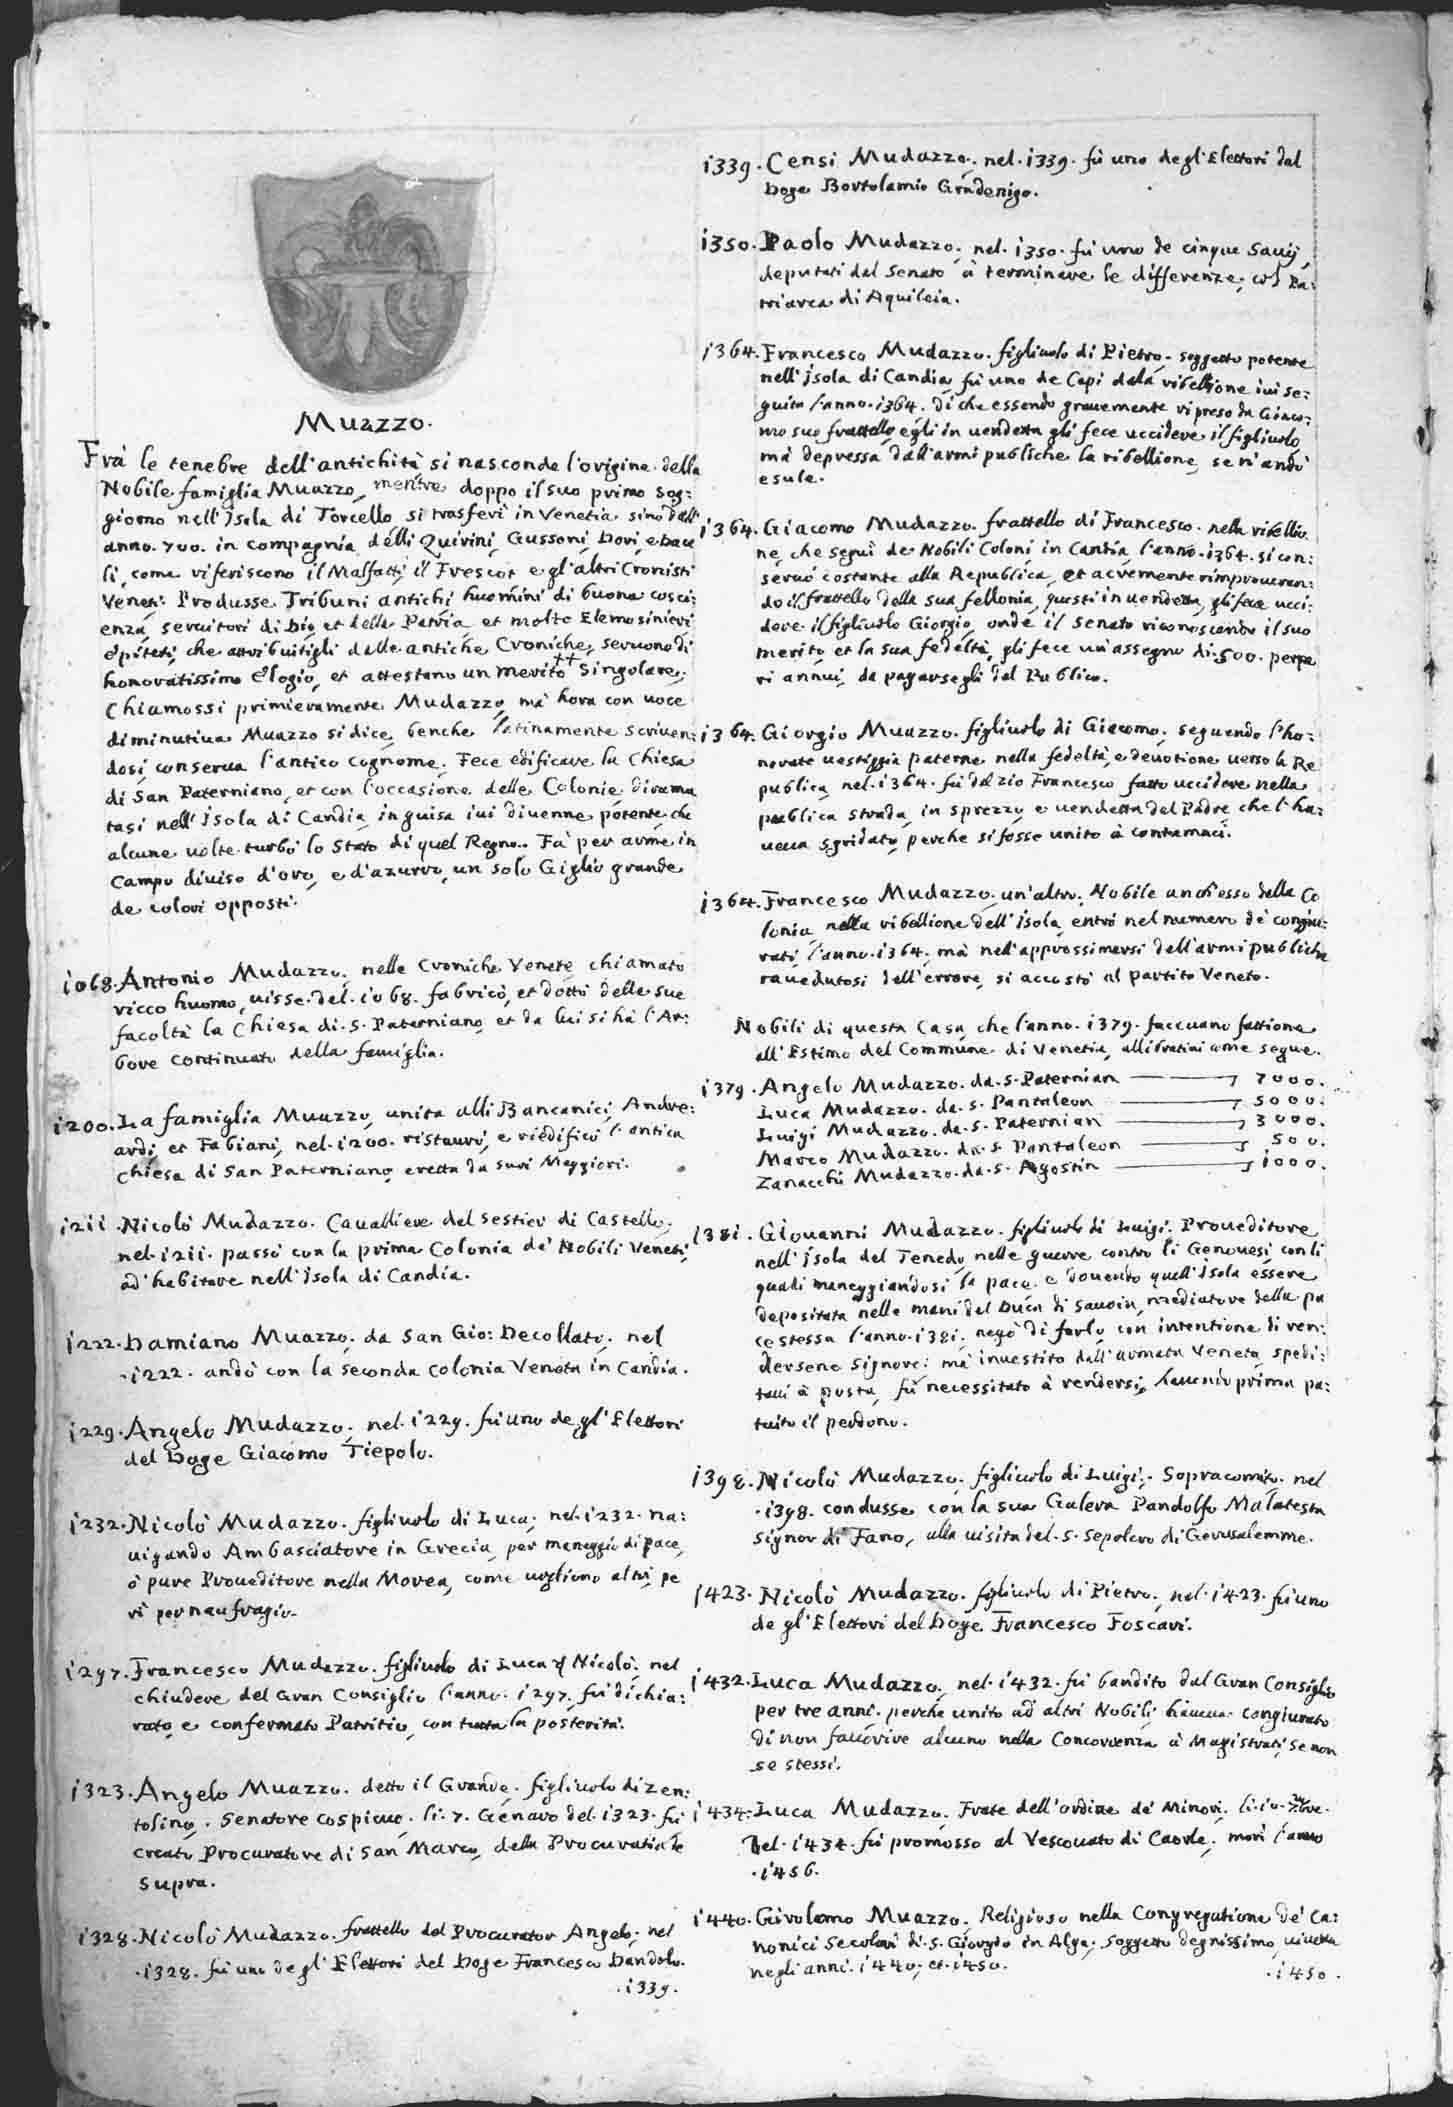 Muazzo.
Frà le tenebre dell'antichità si nasconde l'origine della
Nobile famiglia Muazzo, mentre doppo il suo primo sog:
giorno nell'Isola di Torcello si trasferì in Venetia sino dall'
anno. 700. in compagnia délli Quirini, Gussoni, Dori, e
li, come riferiscono il Malfatti, il Frescot e gl'altri Cronisti
Veneti: Produsse Tribuni antichi huomini di buona cosci:
enza, servitori di Dio, et della Patria et molto Elemosinieri
Epiteti, che attribuitigli dalle antiche Croniche, servono di
honoratissimo Elogio, et attestano un merito singolare.
Chiamossi primieramente Mudazzo, mà hora con voce
diminutiva Muazzo si dice, benche latinamente scriven:
dosi, conserva l'antico cognome. Fece edificare la Chiesa
di San Paterniano, et con l'occasione delle Colonie dirama
tasi nell'Isola di Candia, in guisa ivi divenne potente, che
alcune volte turbò lo Stato di quel Regno. Fà per arme in
Campo diviso d'oro, e d'azurro, un solo Giglio grande
de colori opposti.
1068. Antonio Mudazzo, nelle Croniche Venete chiamato
ricco huomo, visse del. 1068. fabricò, et dottò delle sue
facoltà la Chiesa di. S. Paterniano, et da lui si hà l'Ar:
bore continuato della famiglia.
1200. La famiglia Muazzo, unita alli Bancanici, Andre:
ardi, et Fabiani, nel. 1200. ristaurò, e riedificò l'antica
chiesa di San Paterniano, eretta da suoi Maggiori.
1211. Nicolò Mudazzo. Cavalliere del sestier di Castello,
nel. 1211. passò con la prima Colonia de' Nobili Veneti,
ad habitare nell'Isola di Candia.
1222. Damiano Muazzo, da San Gio: Decollato, nel
.1222. andò con la seconda Colonia Veneta in Candia.
1229. Angelo Mudazzo, nel. 1229. fù uno de gl'Elettori
del Doge Giacomo Tiepolo.
1232. Nicolò Mudazzo. figliuolo di Luca, nel. 1232. na:
vigando Ambasciatore in Grecia, per maneggio di pace,
ò pure Proveditore nella Morea, come vogliono altri, pe
rì per naufragio.
1297. Francesco Mudazzo. figliuolo di Luca q Nicolò, nel
chiudere del Gran Consiglio l'anno. 1297. fù dichia:
rato, e confermato Patritio, con tutta la posterità.
1323. Angelo Muazzo. detto il Grande. figliuolo di Zen:
tolino. Senatore cospicuo. li. 7. Genaro del. 1323. fù
creato Procuratore di San Marco, della Procuratia de
supra.
1328. Nicolò Mudazzo. frattello del Procurator Angelo, nel
.1328. fù uno degl'Elettori del Doge Francesco Dandolo.
.1339.
1339. Censi Mudazzo, nel. 1339. fù uno degl'Elettori dal
Doge Bortolamio Gradenigo.
1350. Paolo Mudazzo, nel. 1350. fù uno de cinque Savij,
deputati dal Senato à terminare le differenze, col Pa:
triarca di Aquileia.
1364. Francesco Mudazzo. figliuolo di Pietro. soggetto potente
nell'Isola di Candia, fù uno de Capi dela ribellione ivi se:
guita l'anno. 1364. di che essendo gravemente ripreso da Giaco:
mo suo frattello, egli in vendetta gli fece uccidere il figliuolo
mà depressa dall'armi publiche la ribellione, se n'andò
esule.
1364. Giacomo Mudazzo. frattello di Francesco. nella ribellio
ne, che seguì de Nobili Coloni in Candia l'anno. 1364. si con:
servò costante alla Republica, et acremente rimproveran:
do il frattello della sua fellonia, questi in vendetta, gli fece ucci:
dere il figliuolo Giorgio, onde il Senato riconoscendo il suo
merito, et la sua fedeltà, gli fece un'assegno di. 500. perpe
ri annui, da pagarsegli dal Publico.
1364. Giorgio Muazzo. figliuolo di Giacomo, seguendo l'ho:
norate vestiggia paterne nella fedeltà, e devotione verso la Re
publica, nel. 1364. fù dal zio Francesco fatto uccidere nella
publica strada, in sprezzo, e vendetta del Padre, che l'ha:
veva sgridato, perche si fosse unito à contumaci.
1364. Francesco Mudazzo, un'altro, Nobile anch'esso della Co
lonia, nella ribellione dell'Isola, entrò nel numero de' congiu:
rati, l'anno. 1364. mà nell'approssimarsi dell'armi publiche
ravedutosi dell'errore, si accostò al partito Veneto.
Nobili di questa Casa, che l'anno. 1379. facevano fattione
all'Estimo del Commune di Venetia, alli come segue.
1379. Angelo Mudazzo. da. S. Paternian 7000.
Luca Mudazzo. da. S. Pantaleon 5000.
Luigi Mudazzo. da. S. Paternian 3000.
Marco Mudazzo. da. S. Pantaleon 500.
Zanacchi Mudazzo. da. S. Agostin 1000.
1381. Giovanni Mudazzo. figliuolo di Luigi. Proveditore
nell'Isola del Tenedo, nelle guerre contro li Genovesi, con li
quali maneggiandosi la pace e dovendo quell'Isola essere
depositata nelle mani del Duca di Savoia, mediatore della pa
ce stessa l'anno. 1381. negò di farlo, con intentione di ren:
dersene Signore: mà investito dall'armata Veneta, spedi:
tavi à posta, fù necessitato à rendersi, havendo prima pa:
tuito il perdono.
1398. Nicolò Mudazzo. figliuolo di Luigi. Sopracomito. nel
.1398. condusse con la sua Galera Pandolfo Malatesta
Signor di Fano, alla visita del. S. Sepolcro di Gerusalemme.
1423. Nicolò Mudazzo. figliuolo di Pietro, nel. 1423. fù uno
de gl'Elettori del Doge Francesco Foscari.
1432. Luca Mudazzo, nel. 1432. fù bandito dal Gran Consiglio
per tre anni. perche unito ad altri Nobili, haveva congiurato
di non favorire alcuno nella Concorrenza à Magistrati, se non
se stessi.
1434. Luca Mudazzo. Frate dell'ordine de' Minori, li. 10.
del. 1434. fù promosso al Vescovato di Caorle, morì l'anno
.1456.
1440. Girolamo Muazzo. Religioso nella Congregatione de' Ca:
nonici Secolari di. S. Giorgio in Alga, soggetto degnissimo, viveva
negli anni. 1440. et. 1450.
.1450.